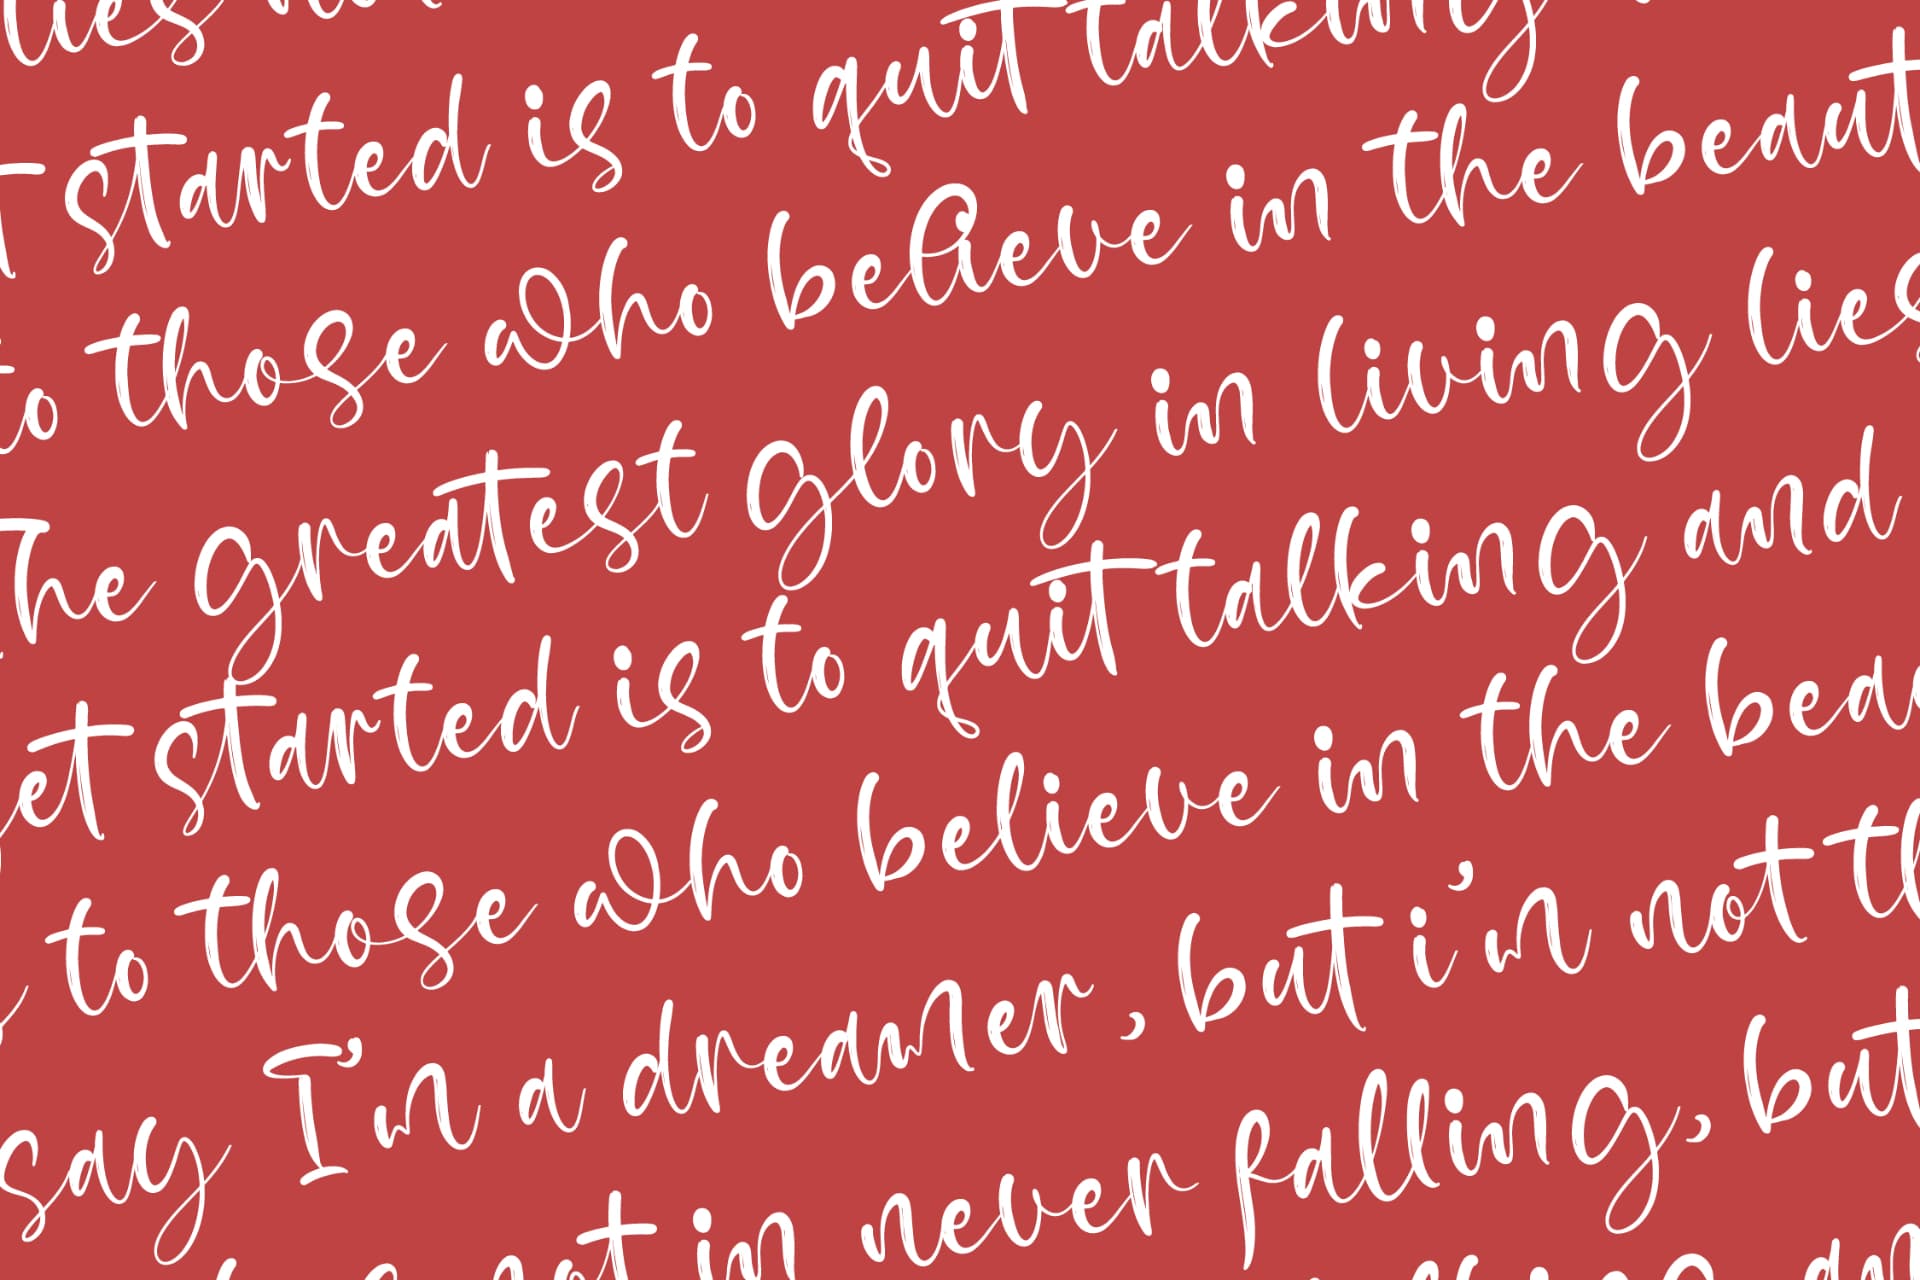 lies
started is to quit talking
to those who believe in the beaut
the greatest glory in living lies
et started is to quit talking and
to those who believe in the beau
say I'm a dreamer, but i'm not th
not in never falling, but